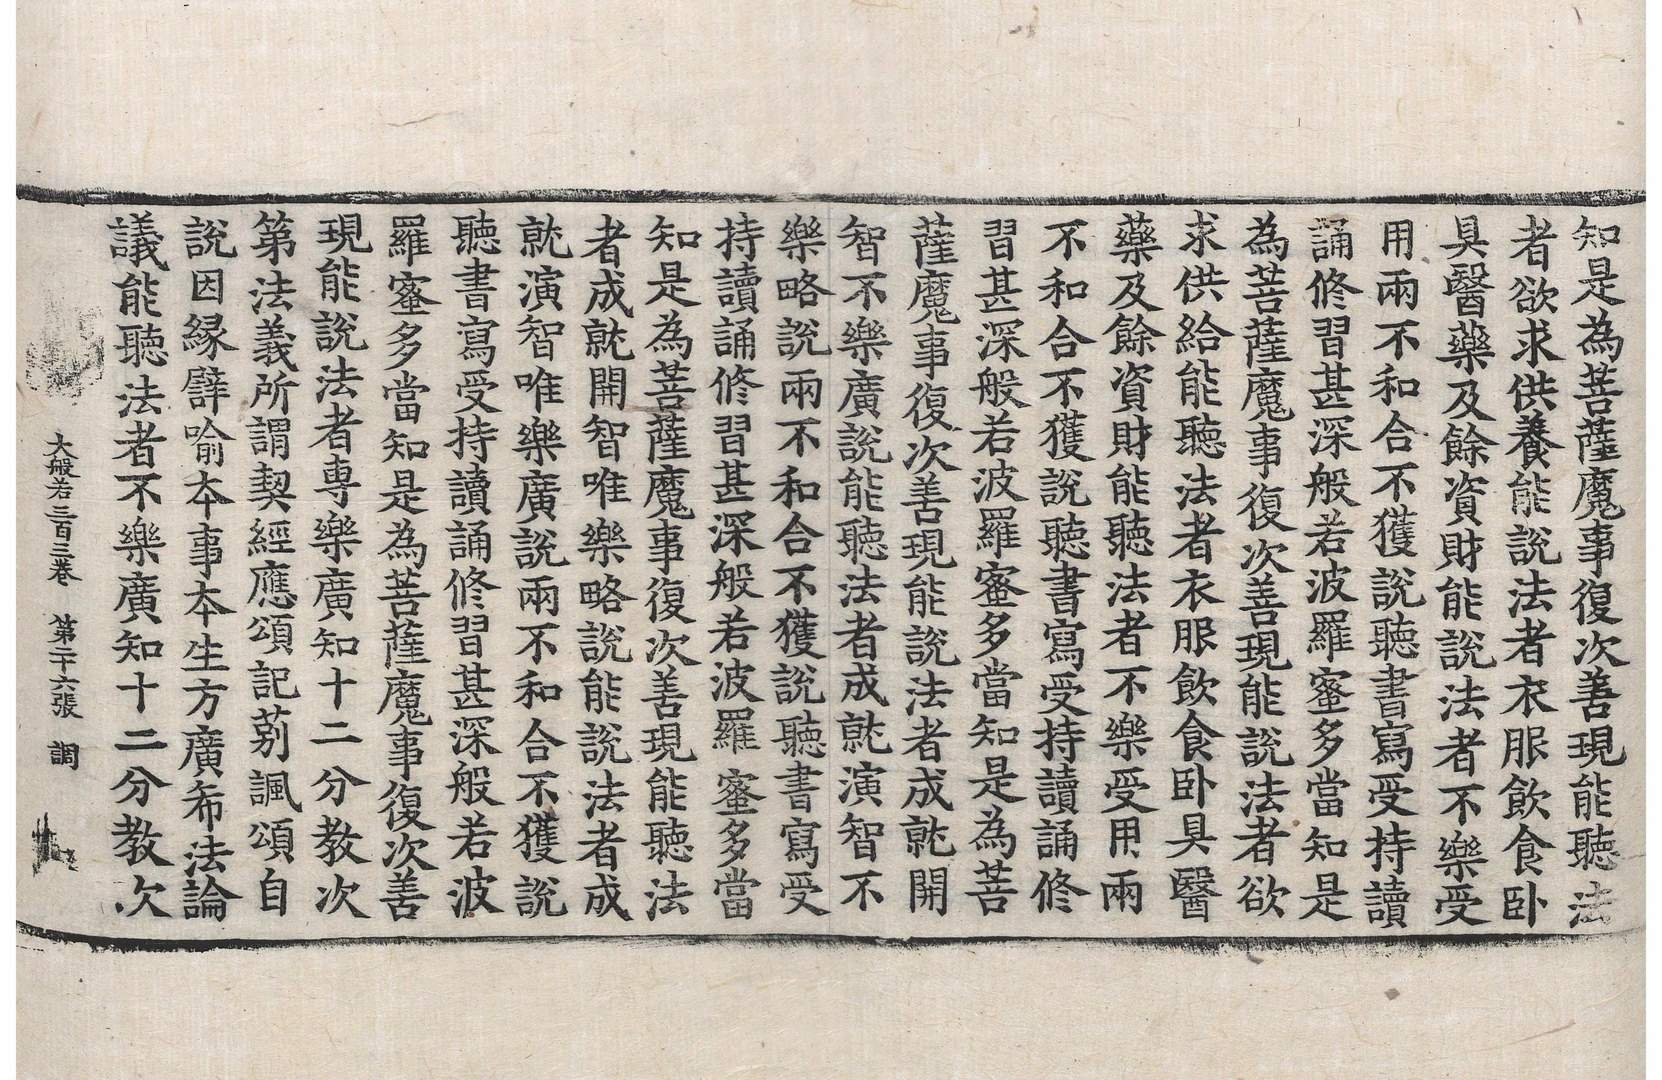 知是為菩薩魔事復次善現能聽法
者欲求供養能說法者衣服飲食卧
具醫藥及餘資財能說法者不樂受
用兩不和合不獲說聽書寫受持讀
誦修習甚深般若波羅蜜多當知是
為菩薩魔事復次善現能說法者欲
求供給能聽法者衣服飲食卧具醫
藥及餘資財能聽法者不樂受用兩
不和合不獲說聽書寫受持讀誦修
習甚深般若波羅蜜多當知是為菩
薩魔事復次善現能說法者成就開
智不樂廣說能聽法者成就演智不
樂略說兩不和合不獲說聽書寫受
持讀誦修習甚深般若波羅蜜多當
知是為菩薩魔事復次善現能聽法
者成就開智唯樂略說能說法者成
就演智唯樂廣說兩不和合不獲說
聽書寫受持讀誦修習甚深般若波
羅蜜多當知是為菩薩魔事復次善
現能說法者專樂廣知十二分教次
第法義所謂契經應頌記莂諷頌自
說因緣譬喻夲事夲生方廣希法論
議能聽法者不樂廣知十二分教次
大般若三百三卷 第二十六張 調